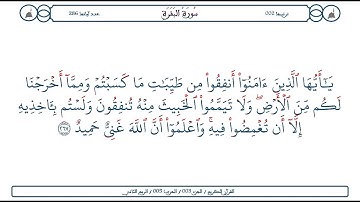 ترتيبها 002 سُورَةُ البَقَرَةِ عدد آياتها 286
يَـٰٓأَيُّهَا ٱلَّذِينَ ءَامَنُوٓا۟ أَنفِقُوا۟ مِن طَيِّبَـٰتِ مَا كَسَبْتُمْ وَمِمَّآ أَخْرَجْنَا
لَكُم مِّنَ ٱلْأَرْضِ ۖ وَلَا تَيَمَّمُوا۟ ٱلْخَبِيثَ مِنْهُ تُنفِقُونَ وَلَسْتُم بِـَٔاخِذِيهِ
إِلَّآ أَن تُغْمِضُوا۟ فِيهِ ۚ وَٱعْلَمُوٓا۟ أَنَّ ٱللَّهَ غَنِىٌّ حَمِيدٌ ٢٦٧
القرآن الكريم / الجزء 003 / الحزب 005 / الربع الثاني